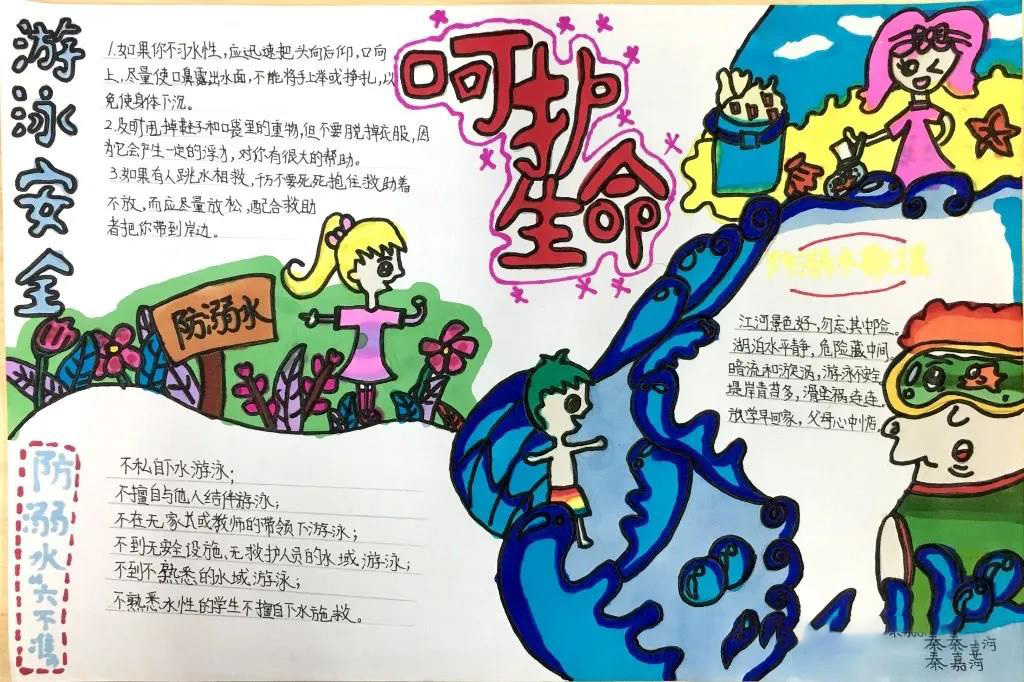 游泳安全
1.如果你不习水性，应迅速把头向后仰，口向
上，尽量使口鼻露出水面，不能将手上举或挣扎，以
免使身体下沉。
2.及时甩掉鞋子和口袋里的重物，但不要脱掉衣服，因
为它会产生一定的浮力，对你有很大的帮助。
3.如果有人跳水相救，千万不要死死抱住救助者
不放，而应尽量放松，配合救助
者把你带到岸边。
呵护
生命
防溺水
防溺水“六不准”
不私自下水游泳；
不擅自与他人结伴游泳；
不在无家长或教师的带领下游泳；
不到无安全设施、无救护人员的水域游泳；
不到不熟悉的水域游泳；
不熟悉水性的学生不擅自下水施救。
防溺水歌谣
江河景色好，勿忘其中险。
湖泊水平静，危险藏中间。
暗流和漩涡，游泳不安全
堤岸青苔多，滑坠祸连连。
放学早回家，父母心中悦。
秦秦
秦嘉河